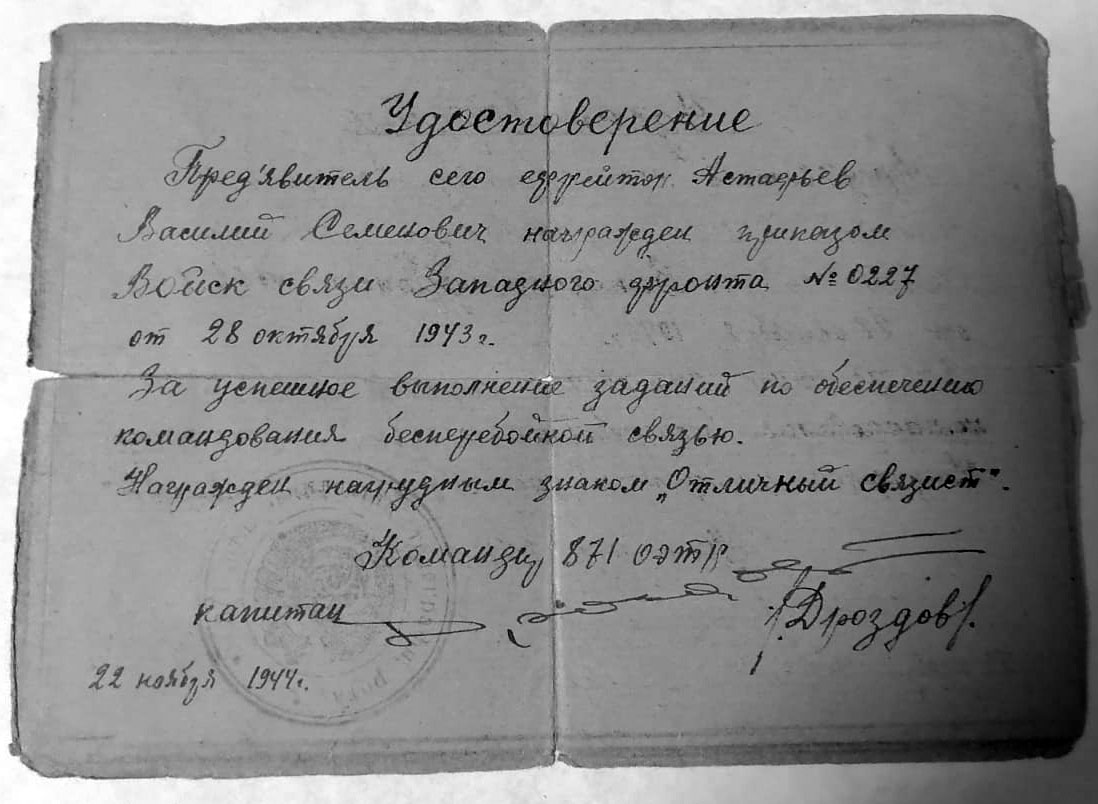 Удостоверение
Пред'явитель сего ефрейтор Астафьев
Василий Семенович награжден приказом
Войск связи Западного фронта № 0227
от 28 октября 1943 г.
За успешное выполнение заданий по обеспечению
командования бесперебойной связью.
Награжден нагрудным знаком „Отличный связист".
Командир 871 оэтр
капитан /Дроздов/.
22 ноября 1944 г.